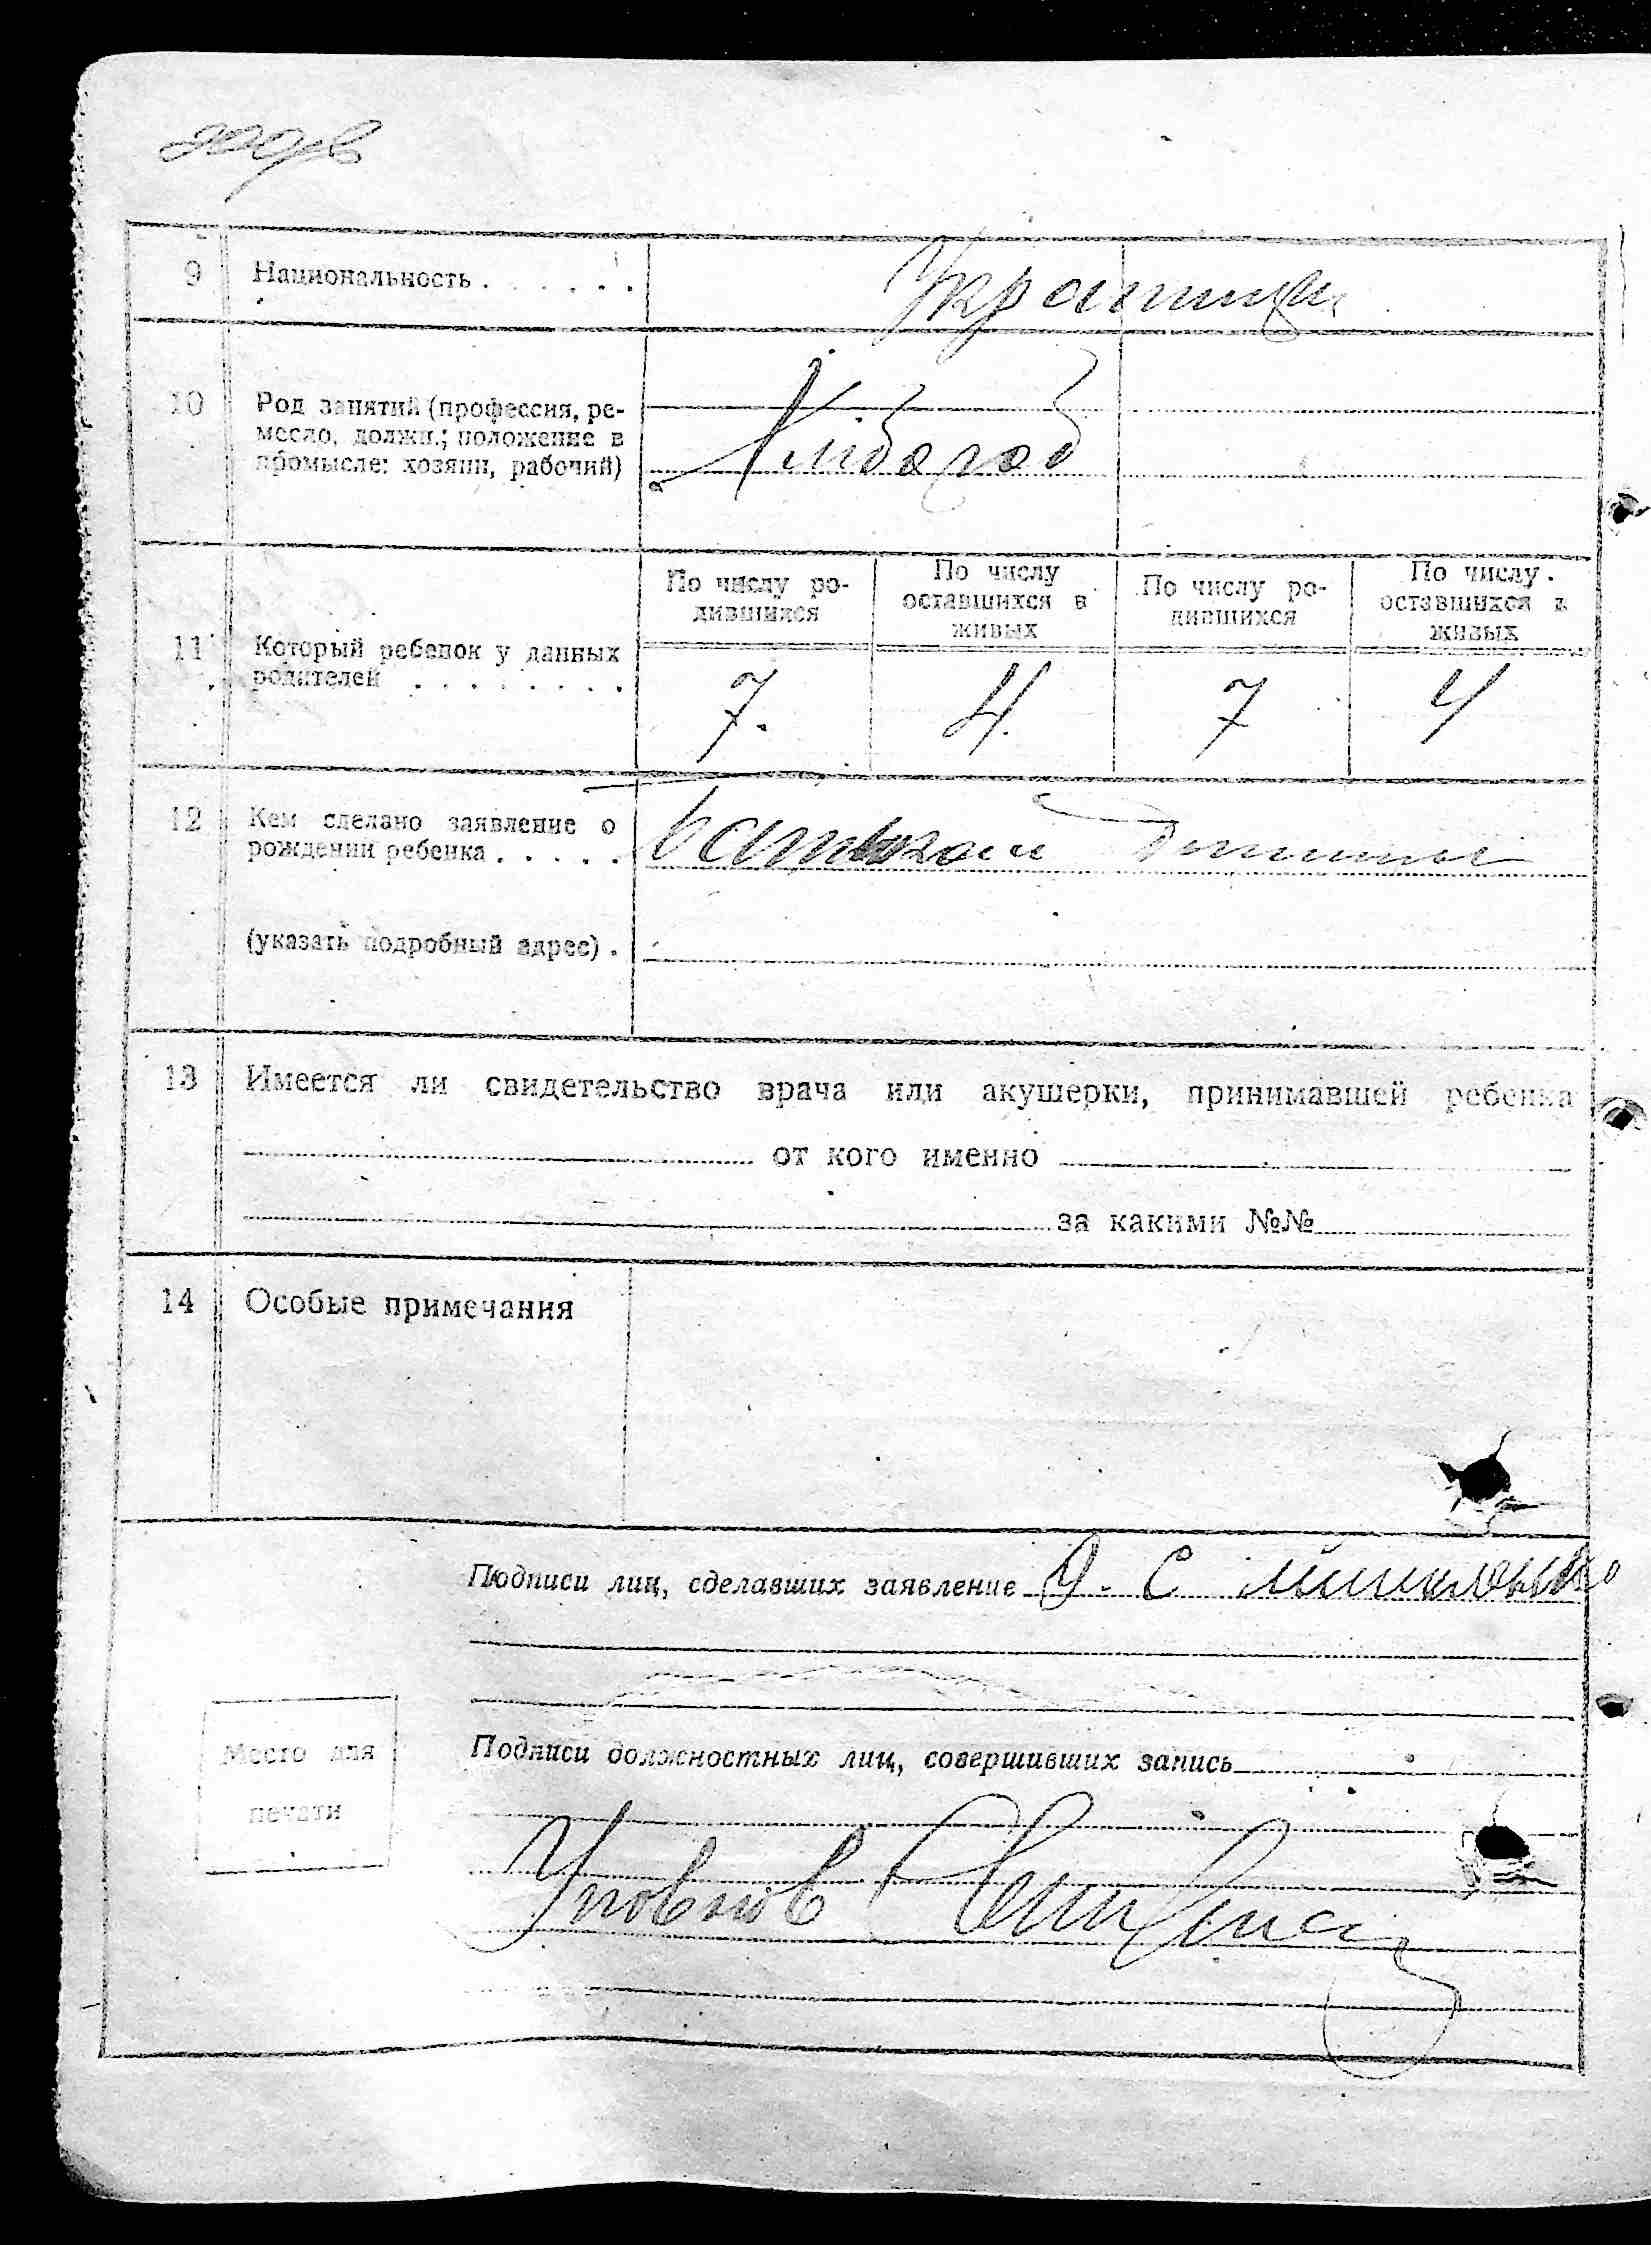 9 Национальность . . . . . .
Українци
10 Род занятий (профессия, ре-
месло, должн.; положение в
промысле: хозяин, рабочий)
Хлібороб
По числу ро-
дившихся
По числу
оставшихся в
живых
По числу ро-
дившихся
По числу
оставшихся в
живых
11 Который ребенок у данных
родителей . . . . . . . .
7. 4. 7 4
12 Кем сделано заявление о
рождении ребенка . . . . .
Батьком
(указать подробный адрес) .
13 Имеется ли свидетельство врача или акушерки, принимавшей ребенка
от кого именно
за какими №№
14 Особые примечания
Подписи лиц, сделавших заявление
Место для
печати
Подписи должностных лиц, совершивших запись